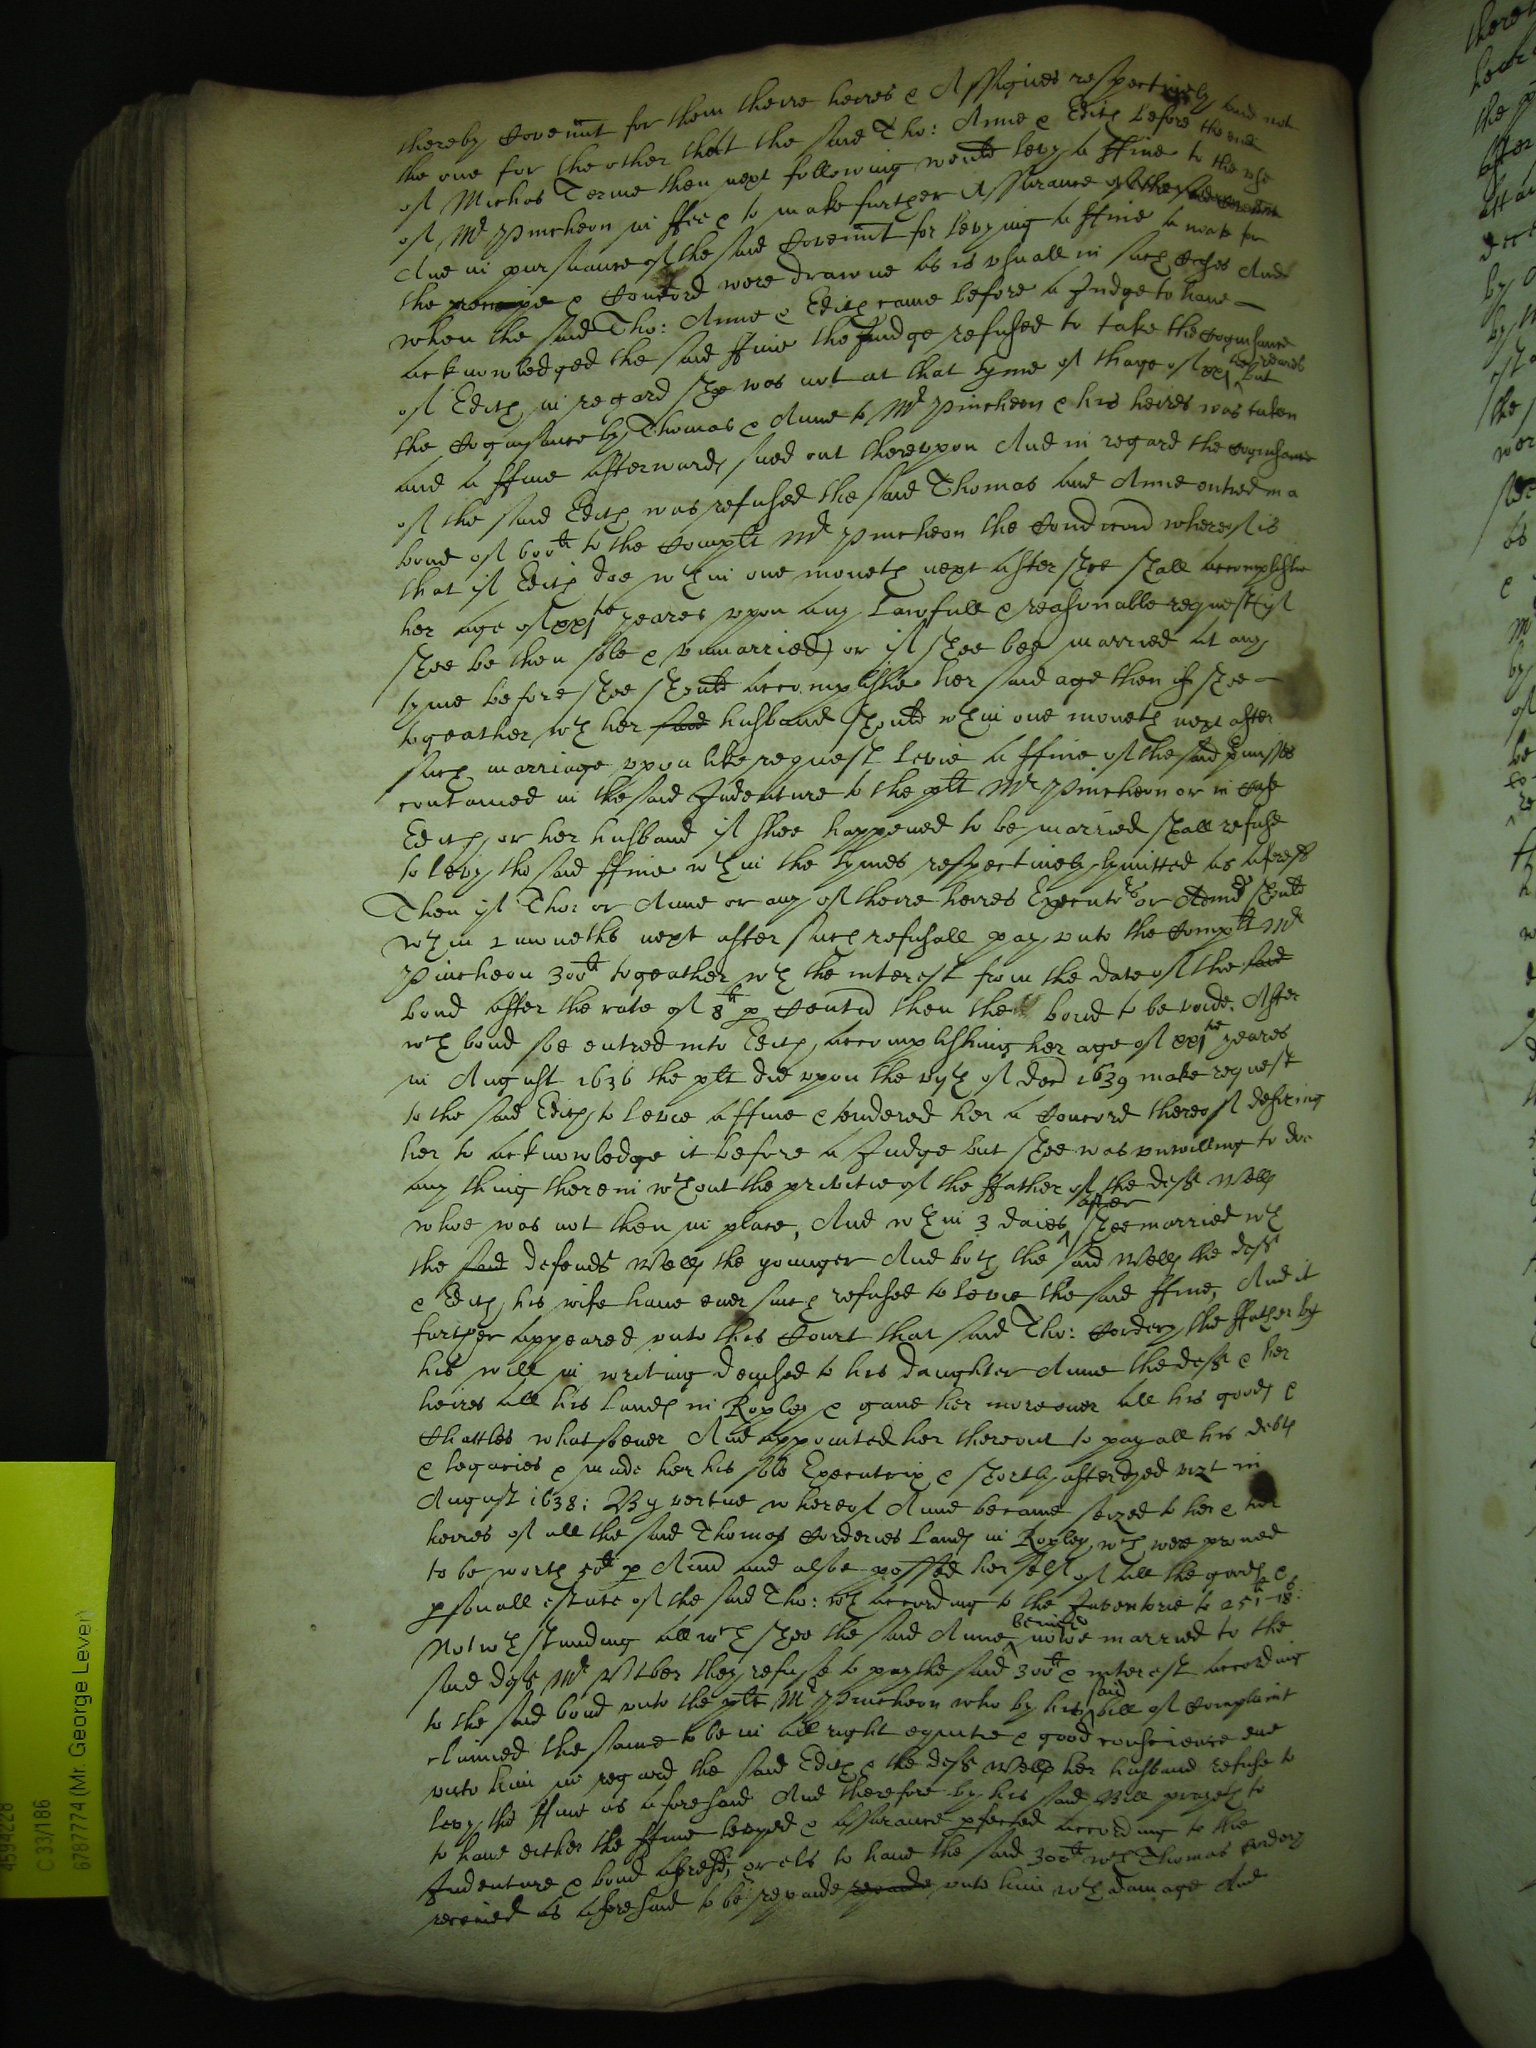 thereby Covennt for them theire heires & Assignes respectively and not
the one for the other that the said Tho: Anne & Edith before the end
of Michas Terme then next following would levy a ffine to the vse
of Mr Pincheon in ffee & to make further Assurance of the
And in pursuance of the said Covennt for levying a ffine a
the & Concord were drawne as is vsuall in such Cases And
when the said Tho: Anne & Edith came before a Judge to have
acknowledged the said ffine the Judge refused to take the Cognisance
of Edith in regard shee was not at that tyme of thage of xxj yeares but
the Cognisance by Thomas & Anne to Mr Pincheon & his heires was taken
and a ffine afterwards sued out therevpon And in regard the Cognisance
of the said Edith was refused the said Thomas and Anne entred in a
bond of 600li to the Complt Mr Pincheon the Condicon whereof is
that if Edith doe wth in one moneth next after shee shall accomplishe
her age of xxjtie yeares vpon any Lawfull & reasonable request (if
shee be then sole & vnmarried) or if shee bee married at any
tyme before shee should accomplishe her said age then if shee
togeather wth her said husband should wth in one moneth next after
such marriage vpon like request levie a ffine of the said pmisses
contained in the said Indenture to the plt Mr Pincheon or in Case
Edith or her husband if shee happened to be married shall refuse
to levy the said ffine wth in the tymes respectively lymitted as aforesd
Then if Tho: or Anne or any of theire heires Executrs or Admrs should
wth in 2 moneths next after such refusall pay vnto the Complt Mr
Pincheon 300li togeather wth the interest from the date of the said
bond after the rate of 8li p Centu then the bond to be voide. After
wch bond soe entred into Edith accomplishing her age of xxjtie yeares
in August 1636 the plt did vpon the vijth of Decr 1639 make request
to the said Edith to levie a ffine & tendered her a Concord thereof desiring
her to acknowledge it before a Judge but shee was vnwilling to doe
any thing therein wthout the privitie of the ffather of the deft Wells
whoe was not then in place, And wth in 3 daies after shee married wth
the said defendt Wells the younger And both the said Wells the deft
& Edith his wife have ever since refused to levie the said ffine, And it
further appeared vnto this Court that said Tho: Cordery the ffather by
his will in writing devised to his daughter Anne the deft & her
heires all his Lands in Ropley & gave her moreover all his goods &
Chattles whatsoever And appointed her thereout to pay all his debts
& legacies & made her his sole Executrix & shortly after dyed vizt in
August 1638: By vertue whereof Anne became seized to her & her
heires of all the said Thomas Corderies Lands in Ropley wch were proved
to be worth 50li p Ann and alsoe possed herself of all the goods &
psonall estate of the said Tho: wch according to the Inventorie to 251li-18s:
Notwthstanding all wch shee the said Anne beinge nowe married to the
said deft Mr they refuse to pay the said 300li & interest according
to the said bond vnto the plt Mr Pincheon who by his said bill of Complaint
claimed the same to be in all right equitie & good conscience due
vnto him in regard the said Edith & the deft Wells her husband refuse to
levy the ffine as aforesaid And therefore by his said Bill prayeth to
to have either the ffine levyed & assurance pfected according to the
Indenture & bond aforesd, or els to have the said 300li wch Thomas Cordery
received as aforesaid to be repaide repaide vnto him wth damage And
4594228
C 33/186
6787774 (Mr. George Lever)